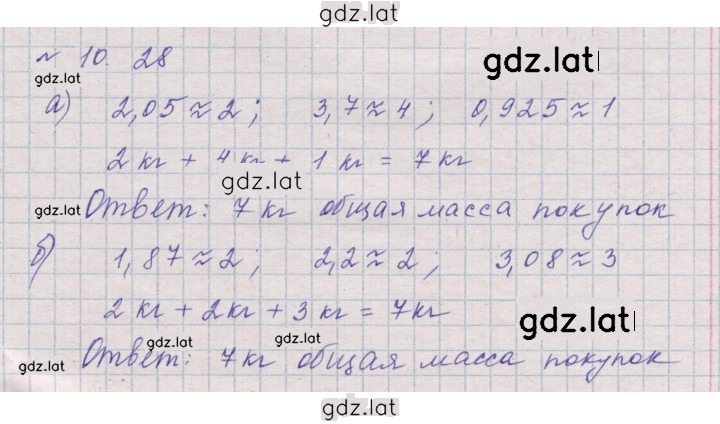 gdz.lat
№ 10. 28
gdz.lat
gdz.lat
а) 2,05 ≈ 2 ; 3,7 ≈ 4 ; 0,925 ≈ 1
2 кг + 4 кг + 1 кг = 7 кг
gdz.lat
gdz.lat
Ответ: 7 кг общая масса покупок
б) 1,87 ≈ 2 ; 2,2 ≈ 2 ; 3,08 ≈ 3
2 кг + 2 кг + 3 кг = 7 кг
gdz.lat
gdz.lat gdz.lat
Ответ: 7 кг общая масса покупок
gdz.lat
gdz.lat